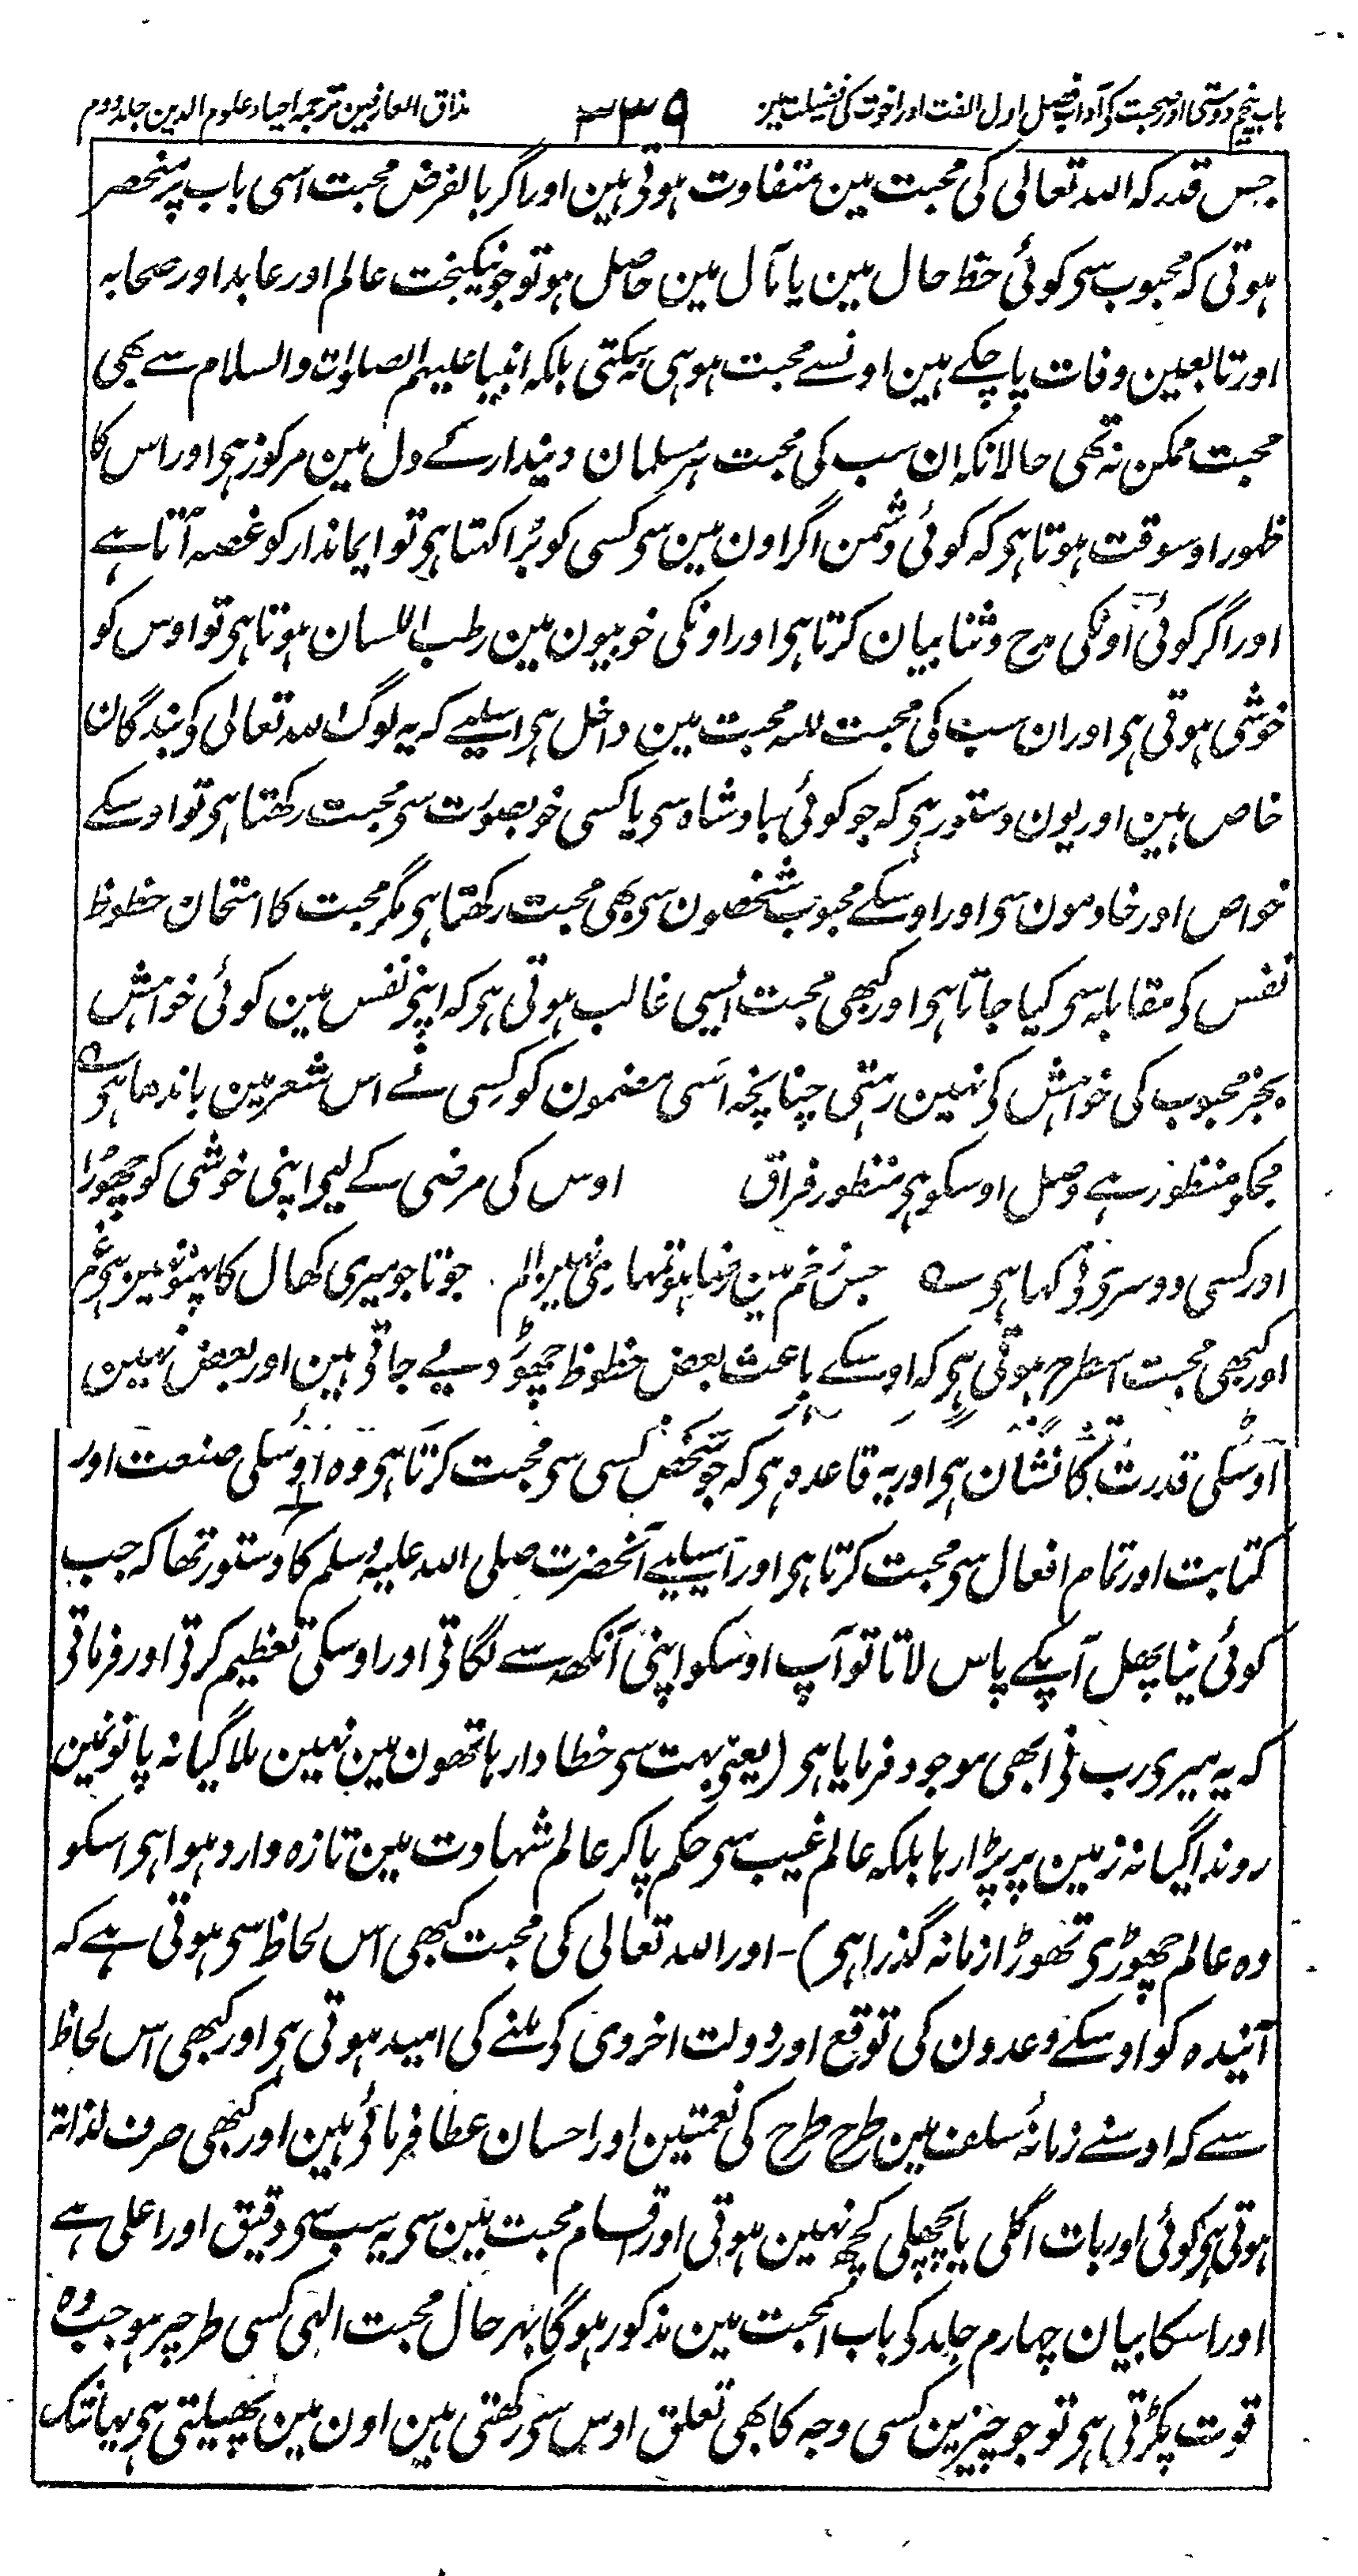 باب پنجم دوستی اور صحبت کی آداب فصل اول الفت اور اخوت کی فضیلت مین ۳۳۹ مذاق العارفین ترجمہ احیاء علوم الدین جلد دوم
جس قدر کہ اللہ تعالی کی محبت مین متفاوت ہوتی ہین اور اگر بالفرض محبت اسی باب پر منحصر
ہوتی کہ محبوب سی کوئی حظ حال مین یا مآل مین حاصل ہو تو جو نیکبخت عالم اور عابد اور صحابہ
اور تابعین وفات پا چکے ہین اونسے محبت ہو ہی نہ سکتی بلکہ انبیا علیہم الصلوات والسلام سے بھی
محبت ممکن نہ تھی حالانکہ ان سب کی محبت ہر مسلمان دیندار کے دل مین مرکوز ہی اور اس کا
ظہور اوسوقت ہوتا ہی کہ کوئی دشمن اگر اون مین سی کسی کو بُرا کہتا ہی تو ایماندار کو غصہ آتا ہے
اور اگر کوئی اونکی مدح و ثنا بیان کرتا ہی اور اونکی خوبیون مین رطب اللسان ہوتا ہی تو اوس کو
خوشی ہوتی ہی اور ان سب کی محبت للہ محبت مین داخل ہی اسلیے کہ یہ لوگ اللہ تعالی کی بندگان
خاص ہین اور یون دستور ہی کہ جو کوئی بادشاہ سی یا کسی خوبصورت سی محبت رکھتا ہی تو اوسکے
خواص اور خادمون سی اور اوسکے محبوب شخصون سی بھی محبت رکھتا ہی مگر محبت کا امتحان حظوظ
نفس کی مقابلہ سی کیا جاتا ہی اور کبھی محبت ایسی غالب ہوتی ہی کہ اپنی نفس مین کوئی خواہش
بجز محبوب کی خواہش کی نہین رہتی چنانچہ اسی مضمون کو کسی نے اس شعر مین باندھا ہی ؎
مجکو منظور ہے وصل اوسکو ہی منظور فراق اوس کی مرضی کے لیی اپنی خوشی کو چھوڑا
اور کسی دوسری نی کہا ہی ؎ جس زخم مین رضا ہو تمہاری نہین الم جوتا جو میری کھال کا پہنو نہین ہی غم
اور کبھی محبت اسطرح ہوتی ہی کہ اوسکے باعث بعض حظوظ چھوڑ دیے جاتی ہین اور بعض نہین
اوسکی قدرت کا نشان ہی اور یہ قاعدہ ہی کہ جو شخص کسی سی محبت کرتا ہی وہ اوسکی صنعت اور
کتابت اور تمام افعال سی محبت کرتا ہی اور اسیلیے آنحضرت صلی اللہ علیہ وسلم کا دستور تھا کہ جب
کوئی نیا پھل آپکے پاس لاتا تو آپ اوسکو اپنی آنکھ سے لگاتی اور اوسکی تعظیم کرتی اور فرماتی
کہ یہ میری رب نی ابھی موجود فرمایا ہی (یعنی بہت سی خطاوار ہاتھون مین نہین ملا گیا نہ پانونمین
روندا گیا نہ زمین پر پڑا رہا بلکہ عالم غیب سی حکم پاکر عالم شہادت مین تازہ وارد ہوا ہی اسکو
وہ عالم چھوڑی تھوڑا زمانہ گذرا ہی)- اور اللہ تعالی کی محبت کبھی اس لحاظ سی ہوتی ہے کہ
آیندہ کو اوسکے وعدون کی توقع اور دولت اخروی کی ملنے کی امید ہوتی ہی اور کبھی اس لحاظ
سے کہ اوسنے زمانۂ سلف مین طرح طرح کی نعمتین اور احسان عطا فرمائی ہین اور کبھی صرف لذاتہ
ہوتی ہی کوئی اور بات اگلی یا پچھلی کچھ نہین ہوتی اور اقسام محبت مین سی یہ سب سی دقیق اور اعلی ہے
اور اسکا بیان چہارم جلد کی باب المحبت مین مذکور ہوگا بہر حال محبت الہی کسی طرحپر ہو جب وہ
قوت پکڑتی ہی تو جو چیزین کسی وجہ کا بھی تعلق اوس سی رکھتی ہین اون مین پھیلتی ہی یہانتک